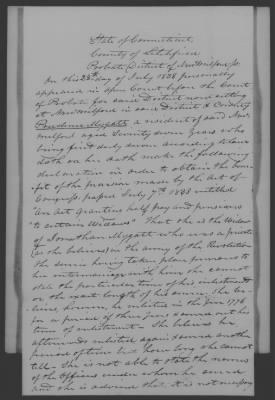 State of Connecticut
County of Litchfield
Probate District of New Milford ss.
On this 28th day of July 1838 personally
appeared in open Court before the Court
of Probate for said District now sitting
at New Milford in said District & County
Prudence Mygatt a resident of said New
Milford aged Seventy seven Years who
being first duly sworn according to law
doth on her oath make the following
declaration in order to obtain the bene-
fit of the provision made by the act of
Congress passed July 7th 1838 entitled
"An act granting half pay and pensions
to certain Widows" That she is the Widow
of Jonathan Mygatt who was a private
(as she believes) in the army of the Revolution
the same having taken place previous to
her intermarriage with him she cannot
state the particular time of his enlistment
or the exact length of his service. She be-
lieves however, he enlisted in the year 1776
for a period of three years & served out his
term of enlistment — She believes he
afterwards enlisted again for another
period of time but how long she cannot
tell — She is not able to state the names
of the Officers under whom he served
and she is advised that it is not necessary